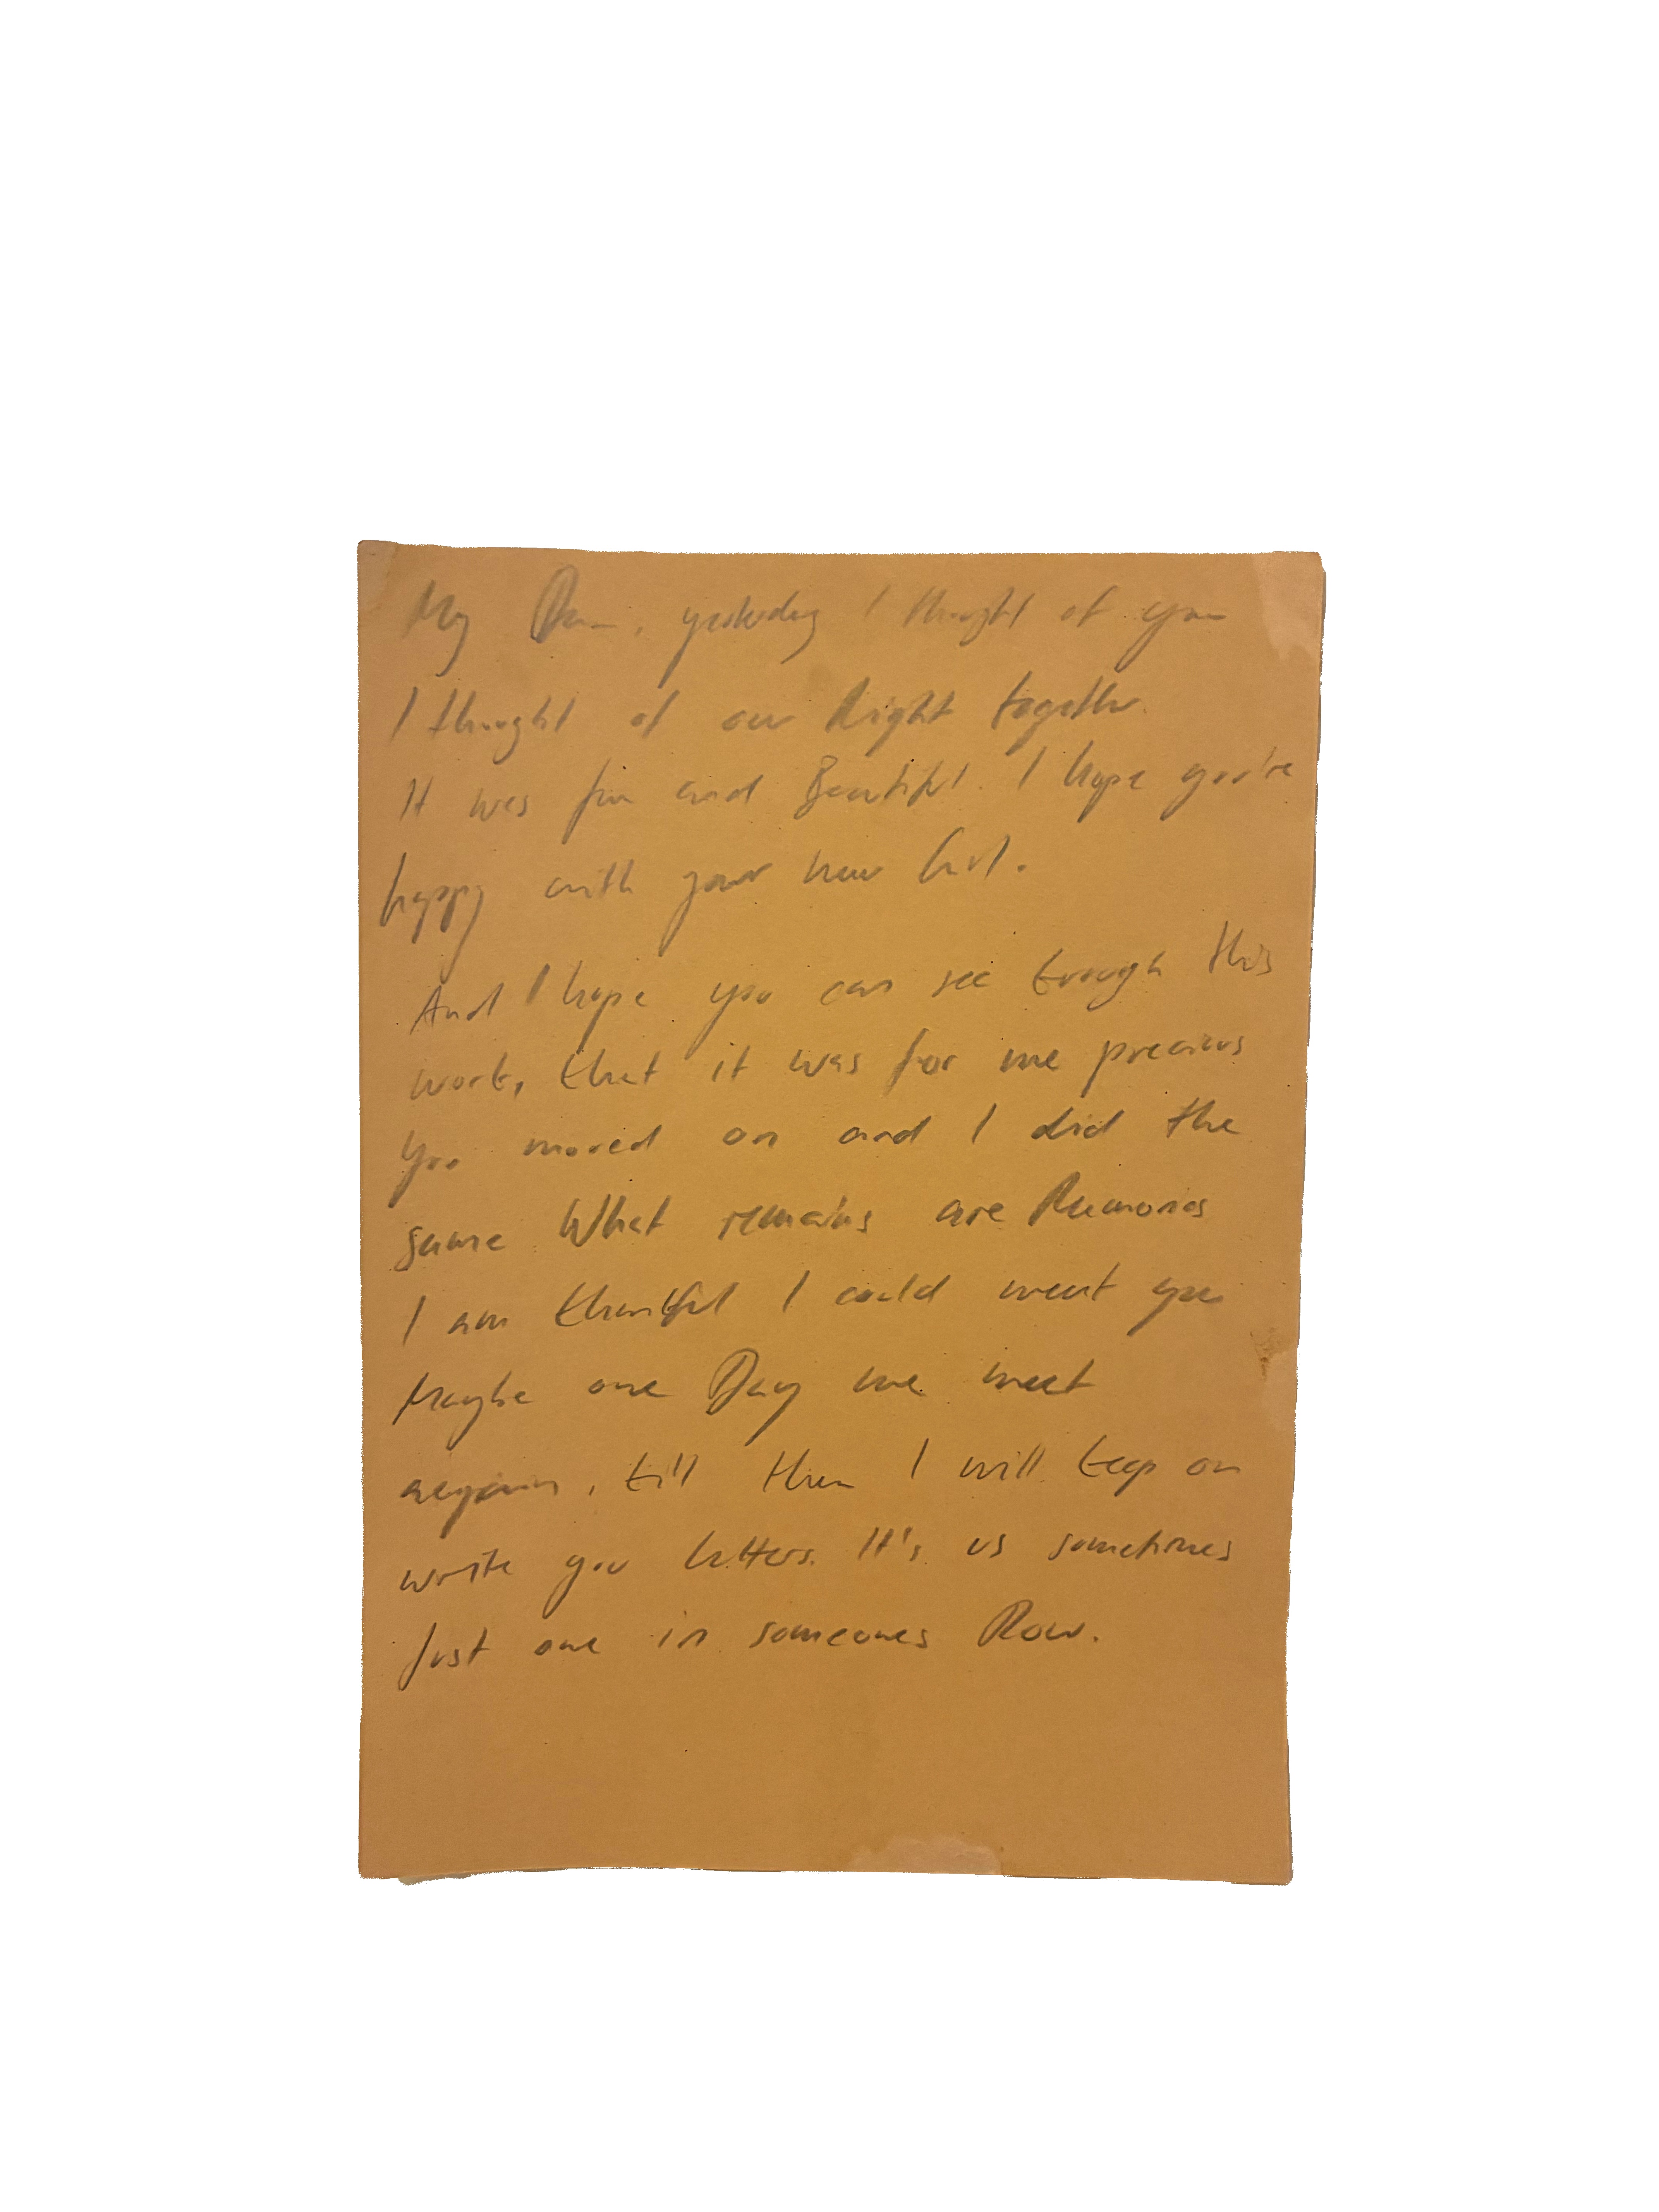 My, yesterday I thought of you
I thought of our Night together.
It was fun and Beautiful. I hope you're
happy with your new Girl.
And I hope you can see trough this
work, that it was for me precious
You moved on and I did the
same. What remains are Memories
I am thankful I could meet you
Maybe one Day we meet
again, till then I will keep on
write you letters. It's us sometimes
just one in someones Row.